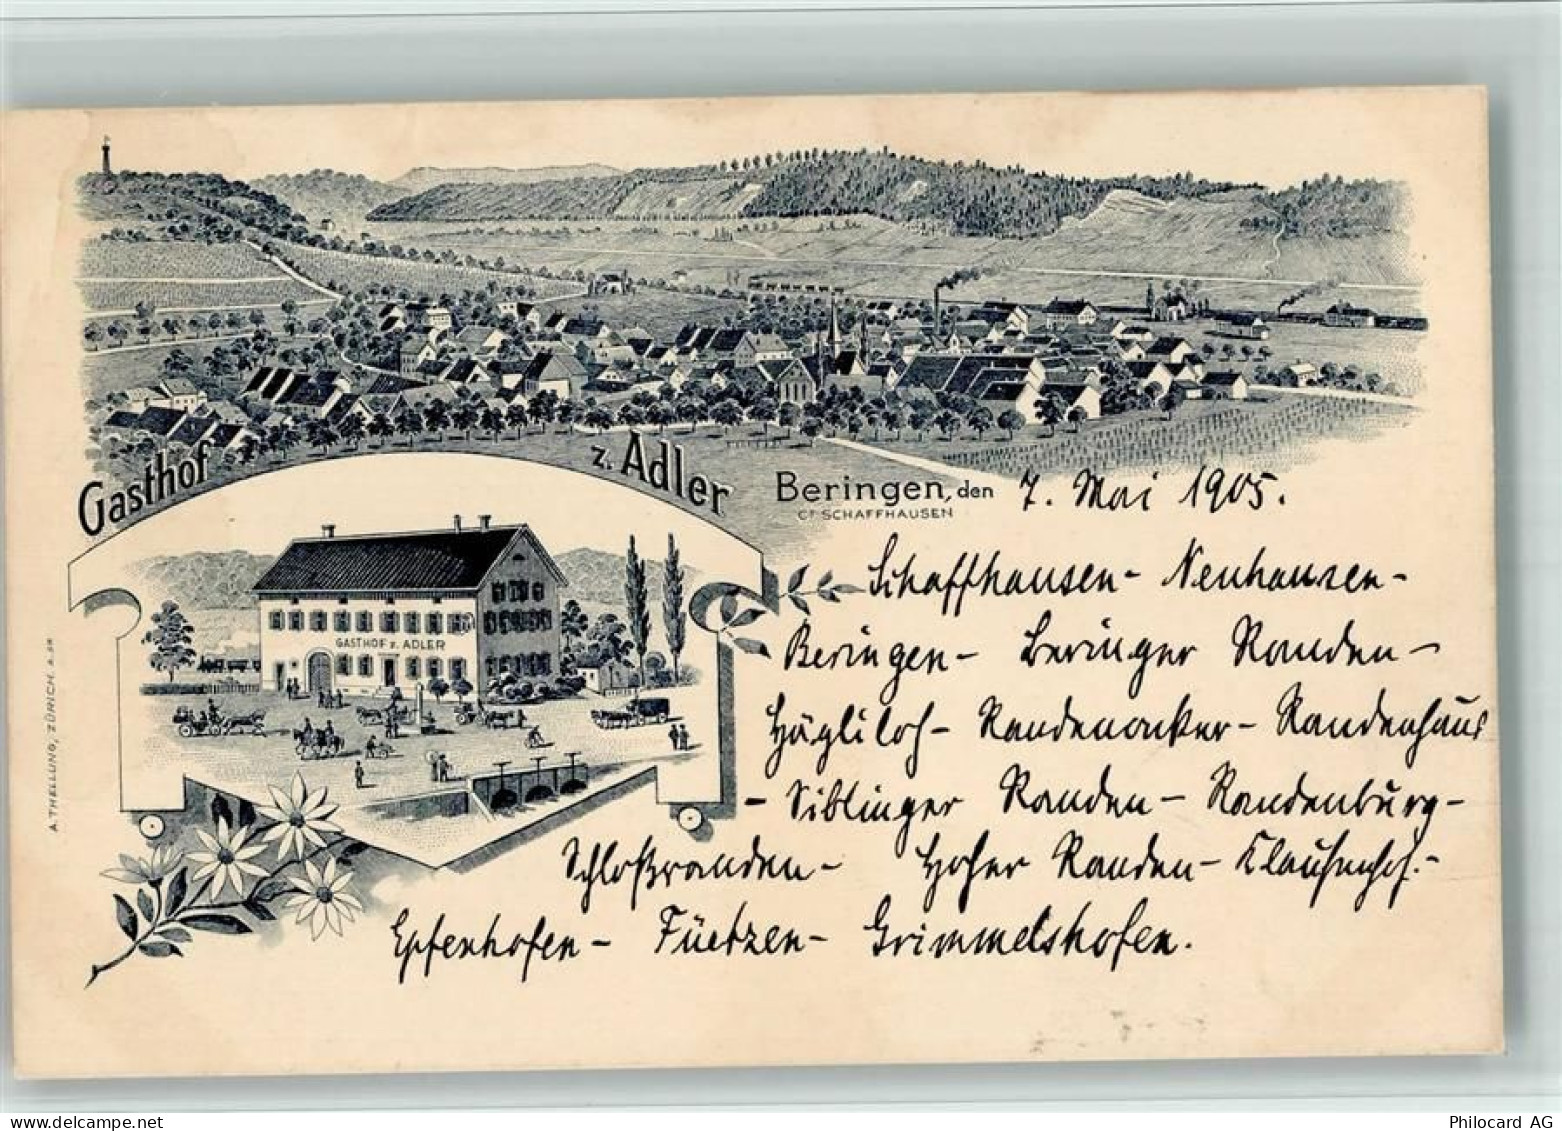 Gasthof z. Adler
Beringen, den 7. Mai 1905.
Ct. SCHAFFHAUSEN
GASTHOF z. ADLER
Schaffhausen - Neuhausen -
Beringen - Beringer Randen -
Hägliloh - Randenanker - Randenhaus
- Siblinger Randen - Randenburg -
Schloßranden - Hoher Randen - Klausenhof. -
Epfenhofen - Füetzen - Grimmelshofen.
A. THELLUNG, ZÜRICH.
Philocard AG
www.delcampe.net